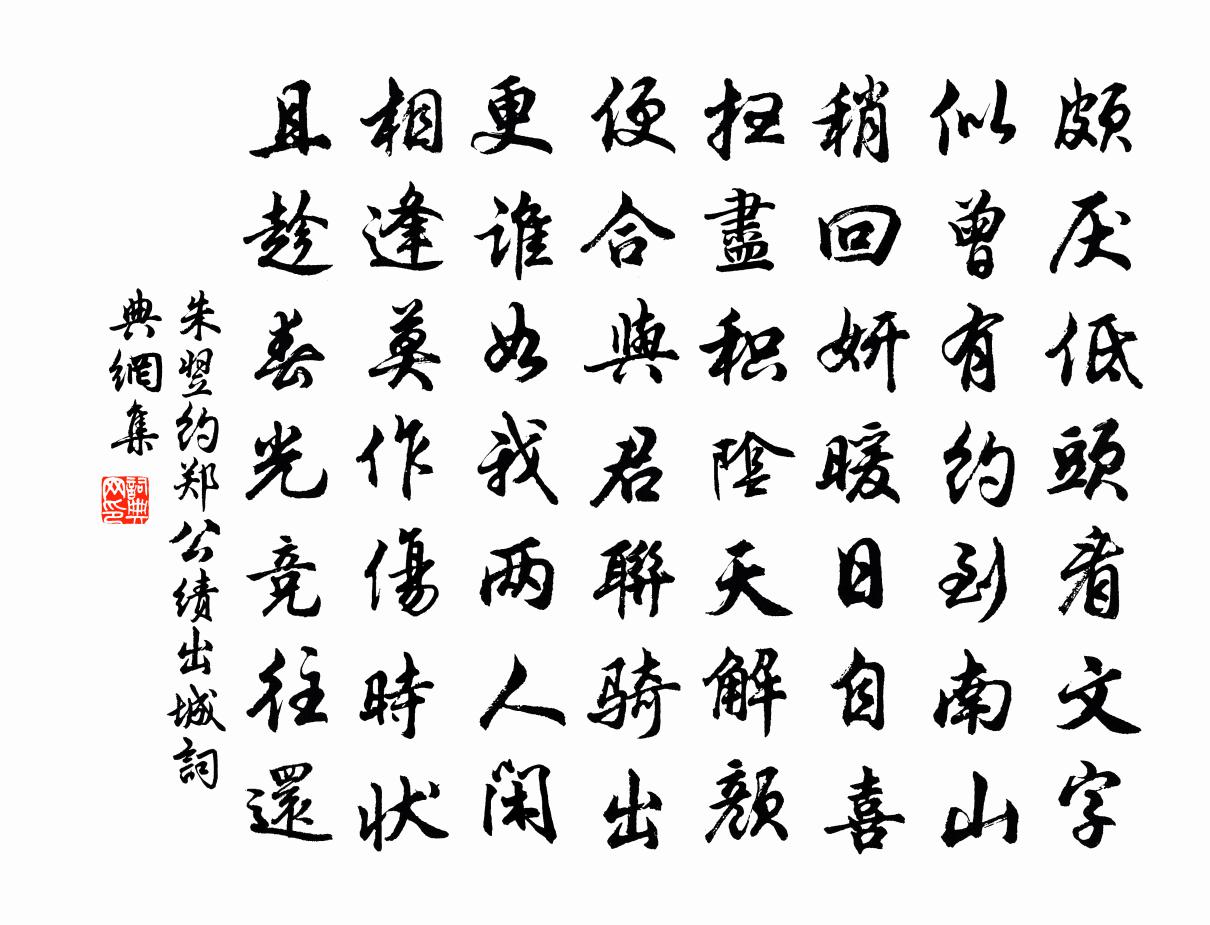 頗厌低頭看文字
似曾有約到南山
稍回妍暖日自喜
扫盡积陰天解顏
便合與君聯骑出
更誰如我两人闲
相逢莫作傷時状
且趁春光竞往還
朱翌約郑公绩出城詞
典網集
詞典网印